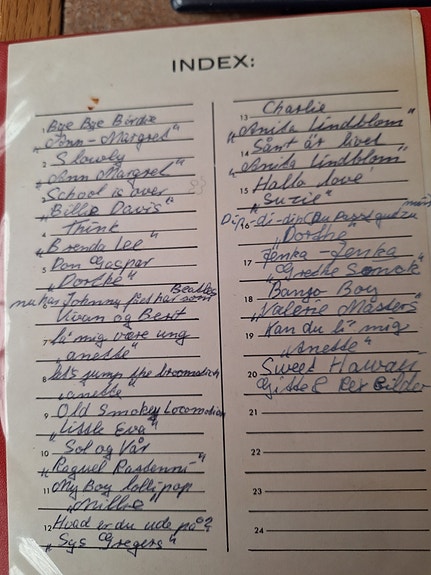 INDEX:
1 Bye Bye Birdie
"Ann-Margret"
2 Slowly
"Ann Margret"
3 School is over
"Billie Davis"
4 Think
"Brenda Lee"
5 Don Gaspar
"Dorthe"
Beatles
6 nu har Johnny fået hår som
Vivan og Berit
7 la' mig være ung
"anette"
8 let's jump the broomstick
"anette"
9 Old Smokey Locomotion
"Little Eva"
10 Sol og Vår
"Raquel Rastenni"
11 My Boy lollipop
"Millie"
12 Hvad er du ude på?
"Sys Gregers"
13 Charlie
"Anita Lindblom"
14 Sånt är livet
"Anita Lindblom"
15 Hallo love
"Suzie"
16 Dip-di-din Du passt gut zu
mir
"Dorthe"
17 Jenka-Jenka
"Grethe Sønck"
18 Banjo Boy
"Valerie Masters"
19 Kan du li' mig
"Anette"
20 Sweet Hawaii
Gitte & Rex Gildo
21
22
23
24